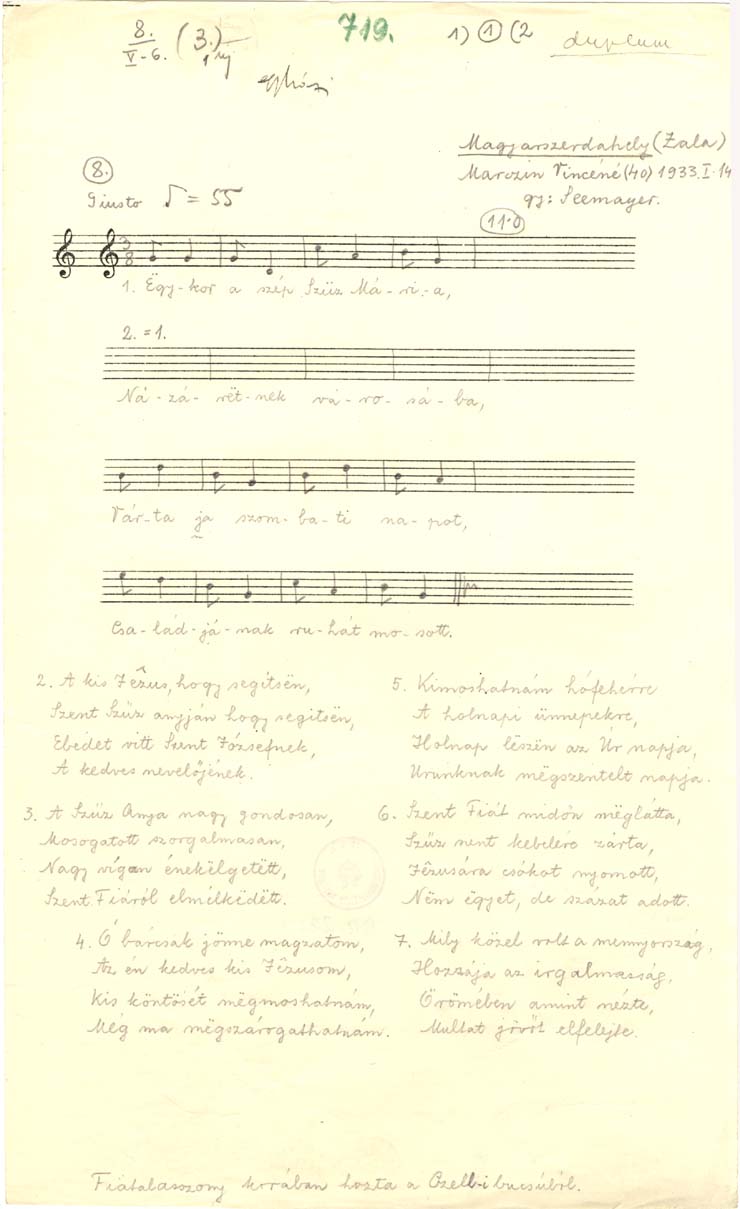 8.
V-6.
(3.)
719.
1) ① (2
duplum
Egyházi
Magyarszerdahely (Zala)
Marczin Vincéné (40) 1933. I. 14
gy: Seemayer.
8.
Giusto ♪ = 55
11.0
3
8
1. Ëgy-kor a szép Szűz Má-ri-a,
2. = 1.
Ná-zá-rët-nek vá-ro-sá-ba,
Vár-ta ja szom-ba-ti na-pot,
Csa-lád-já-nak ru-hát mo-sott.
2. A kis Jêzus, hogy segítsën,
Szent Szűz anyján hogy segitsën,
Ebédet vitt Szent Józsefnek,
A kedves nevelőjének.
3. A Szűz Anya nagy gondosan,
Mosogatott szorgalmasan,
Nagy vígan énekëlgetëtt,
Szent Fiáról elmélkëdëtt.
4. Ó bárcsak jönne magzatom,
Az én kedves kis Jêzusom,
Kis köntösét mëgmoshatnám,
Még ma mëgszárogathatnám.
5. Kimoshatnám hófehérre
A holnapi ünnepekre,
Holnap lëszën az Úr napja,
Urunknak mëgszentelt napja.
6. Szent Fiát midőn mëglátta,
Szűz nent kebelére zárta,
Jêzusára csókot nyomott,
Nëm ëgyet, de százat adott.
7. Mily közel volt a mennyország,
Hozzája az irgalmasság,
Örömében amint nézte,
Multat jövőt elfelejte.
Fiatalasszony korában hozta a Czell-i bucsúból.